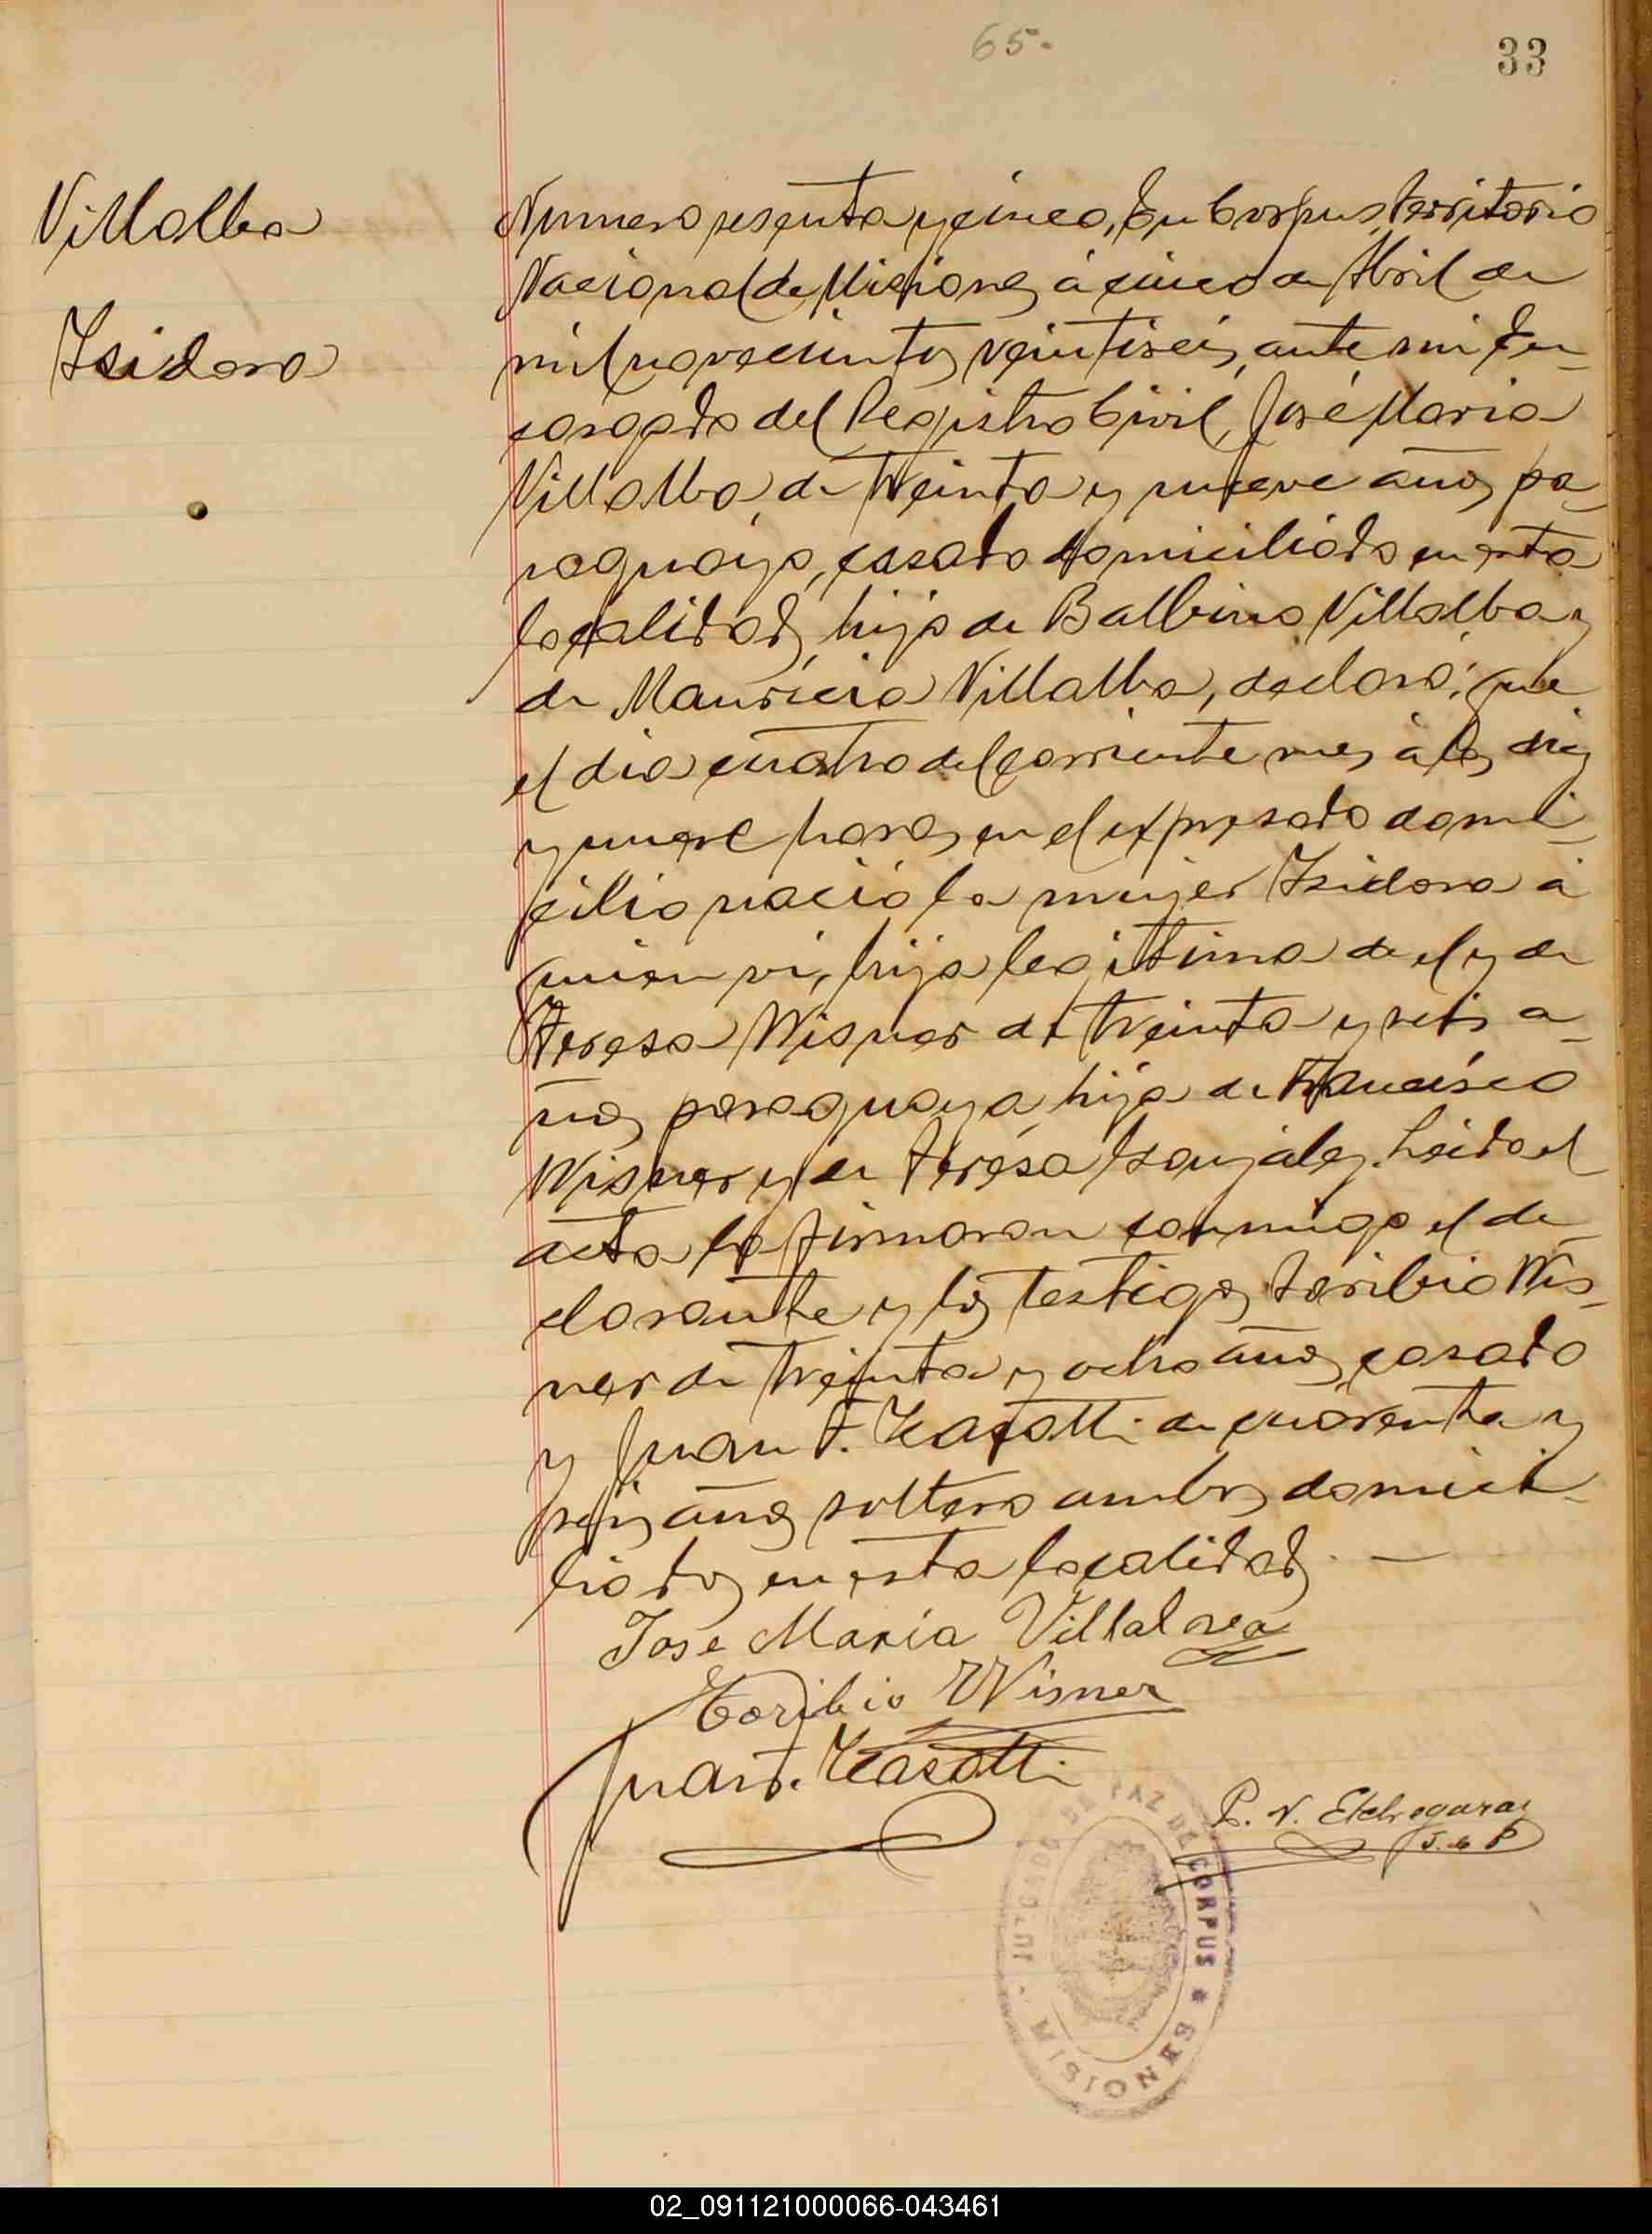 65.
33
Villalba
Isidora
Numero sesenta y cinco, En Corpus, Territorio
Nacional de Misiones, á cinco de Abril de
mil novecientos veintiseis, ante mi En-
cargado del Registro Civil, José Maria
Villalba, de treinta y nueve años, pa-
raguayo, casado domiciliado en esta
localidad, hijo de Balbino Villalba y
de Mauricia Villalba, declaró; que
el dia cuatro del corriente mes á las diez
y nueve horas, en el expresado domi-
cilio nació la mujer Isidora á
quien vi, hija legitima de el y de
Teresa Wisner de treinta y seis a-
ños, paraguaya, hija de Francisco
Wisner y de Teresa Gonzalez. Leida el
acta la firmaron conmigo el de-
clarante y los testigos, Toribio Wis-
ner de treinta y ocho años, casado
y Juan F. de cuarenta y
seis años, soltero ambos domici-
liados en esta localidad. —
Jose Maria Villalva
Toribio Wisner
Juan F.
P. N. Etchegaray
J. de P
JUZGADO DE PAZ DE CORPUS * MISIONES
02_091121000066-043461